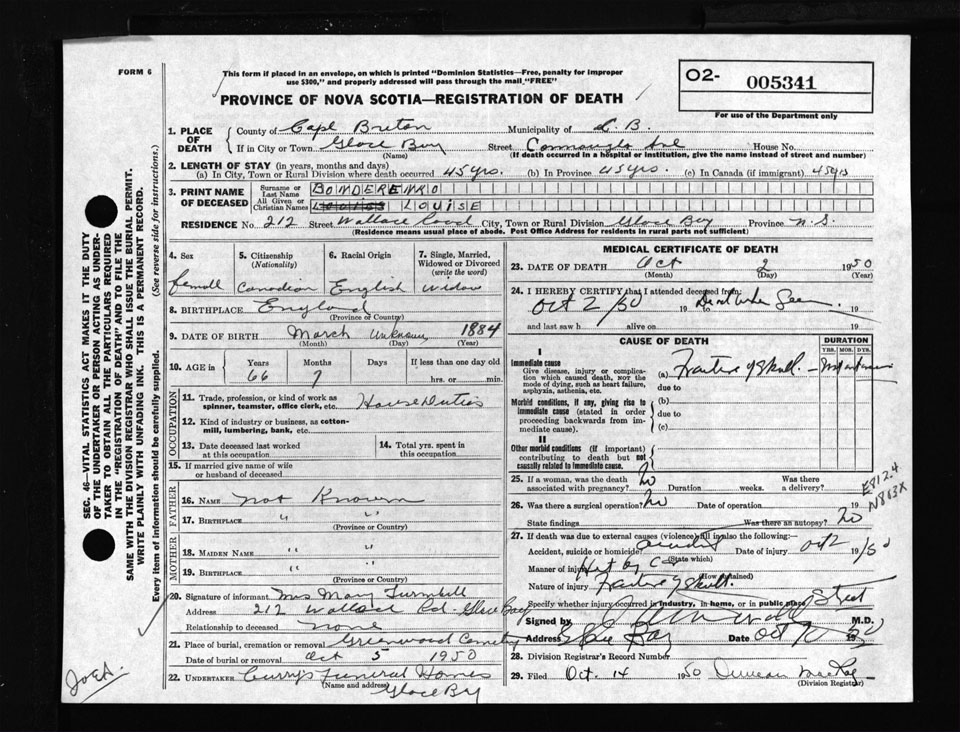 FORM 6
This form if placed in an envelope, on which is printed "Dominion Statistics—Free, penalty for improper
use $300," and properly addressed will pass through the mail "FREE"
O2- 005341
For use of the Department only
PROVINCE OF NOVA SCOTIA—REGISTRATION OF DEATH
1. PLACE OF DEATH
County of Cape Breton Municipality of C. B.
If in City or Town Glace Bay Street House No.
(Name) (If death occurred in a hospital or institution, give the name instead of street and number)
2. LENGTH OF STAY (in years, months and days)
(a) In City, Town or Rural Division where death occurred 45 yrs. (b) In Province 45 yrs. (c) In Canada (if immigrant) 45 yrs
3. PRINT NAME OF DECEASED
Surname or Last Name BONDERENKO
All Given or Christian Names LOUISE
RESIDENCE No. 212 Street Wallace Road City, Town or Rural Division Glace Bay Province N.S.
(Residence means usual place of abode. Post Office Address for residents in rural parts not sufficient)
4. Sex
female
5. Citizenship
(Nationality)
Canadian
6. Racial Origin
English
7. Single, Married,
Widowed or Divorced
(write the word)
widow
8. BIRTHPLACE England
(Province or Country)
9. DATE OF BIRTH March Unknown 1884
(Month) (Day) (Year)
10. AGE in Years Months Days If less than one day old
66 7 hrs. or min.
OCCUPATION
11. Trade, profession, or kind of work as
spinner, teamster, office clerk, etc. House Duties
12. Kind of industry or business, as cotton-
mill, lumbering, bank, etc.
13. Date deceased last worked
at this occupation
14. Total yrs. spent in
this occupation
15. If married give name of wife
or husband of deceased
FATHER
16. NAME not Known
17. BIRTHPLACE " "
(Province or Country)
MOTHER
18. MAIDEN NAME " "
19. BIRTHPLACE " "
(Province or Country)
20. Signature of informant Mrs Mary Turnbull
Address 212 Wallace Rd. Glace Bay
Relationship to deceased none
21. Place of burial, cremation or removal Greenwood Cemetery
Date of burial or removal Oct 5 1950
22. UNDERTAKER Curry's Funeral Homes
(Name and address) Glace Bay
MEDICAL CERTIFICATE OF DEATH
23. DATE OF DEATH Oct 2 1950
(Month) (Day) (Year)
24. I HEREBY CERTIFY that I attended deceased from:
Oct 2/50 19 to Dead when Seen 19
and last saw h alive on 19
CAUSE OF DEATH
DURATION
YRS. MOS. DYS.
I
Immediate cause
Give disease, injury or complica-
tion which caused death, NOT the
mode of dying, such as heart failure,
asphyxia, asthenia, etc.
(a) Fracture of Skull.
due to
Morbid conditions, if any, giving rise to
immediate cause (stated in order
proceeding backwards from im-
mediate cause).
(b)
due to
(c)
II
Other morbid conditions (if important)
contributing to death but not
causally related to immediate cause.
25. If a woman, was the death
associated with pregnancy? No Duration weeks. Was there
a delivery?
26. Was there a surgical operation? No Date of operation 19
State findings Was there an autopsy? No
E812.4
N803X
27. If death was due to external causes (violence) fill in also the following:
Accident, suicide or homicide? accident Date of injury Oct 2 19/50
(State which)
Manner of injury Hit by Car
(How sustained)
Nature of injury Fracture of Skull.
Specify whether injury occurred in industry, in home, or in public place Street
Signed by M.D.
Address Glace Bay Date Oct 19 50
28. Division Registrar's Record Number
29. Filed Oct. 14 1950 Duncan MacKay
(Division Registrar)
SEC. 46—VITAL STATISTICS ACT MAKES IT THE DUTY
OF THE UNDERTAKER OR PERSON ACTING AS UNDER-
TAKER TO OBTAIN ALL THE PARTICULARS REQUIRED
IN THE "REGISTRATION OF DEATH" AND TO FILE THE
SAME WITH THE DIVISION REGISTRAR WHO SHALL ISSUE THE BURIAL PERMIT.
WRITE PLAINLY WITH UNFADING INK. THIS IS A PERMANENT RECORD.
Every item of information should be carefully supplied. (See reverse side for instructions.)